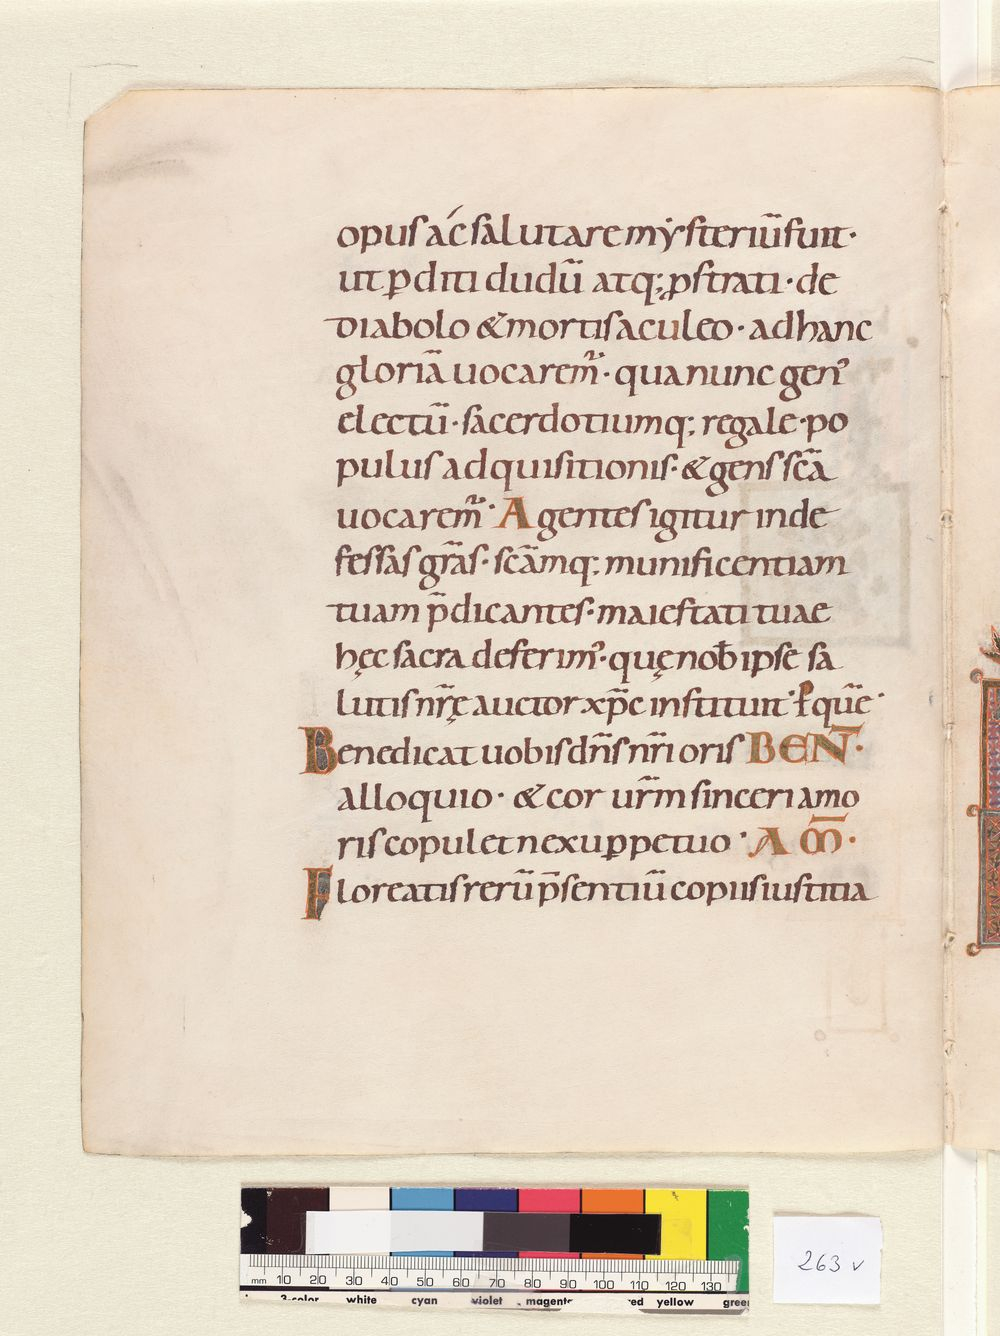 opus ac salutare mẏsteriū fuit·
ut ꝑditi dudū atq; ꝓstrati· de
diabolo & mortis aculeo· ad hanc
gloriā uocarem̄· qua nunc gen᾽
electū· sacerdotiumq; regale· po
pulus adquisitionis· & gens scā
uocarem̄· Agentes igitur inde
fessas grās· scāmq; munificentiam
tuam p̄dicantes· maiestati tuae
hęc sacra deferim᾽· quę nob̄ ipse sa
lutis nr̄ę auctor xp̄c instituit· ꝑ quē·
Benedicat uobis dn̄s nr̄i oris BEN̄·
alloquio· & cor ur̄m sinceri amo
ris copulet nexu ꝑpetuo· AM̄·
Floreatis rerū p̄sentiū copiis iustitia
263 v
mm 10 20 30 40 50 60 70 80 90 100 110 120 130
3-color white cyan violet magenta red yellow green